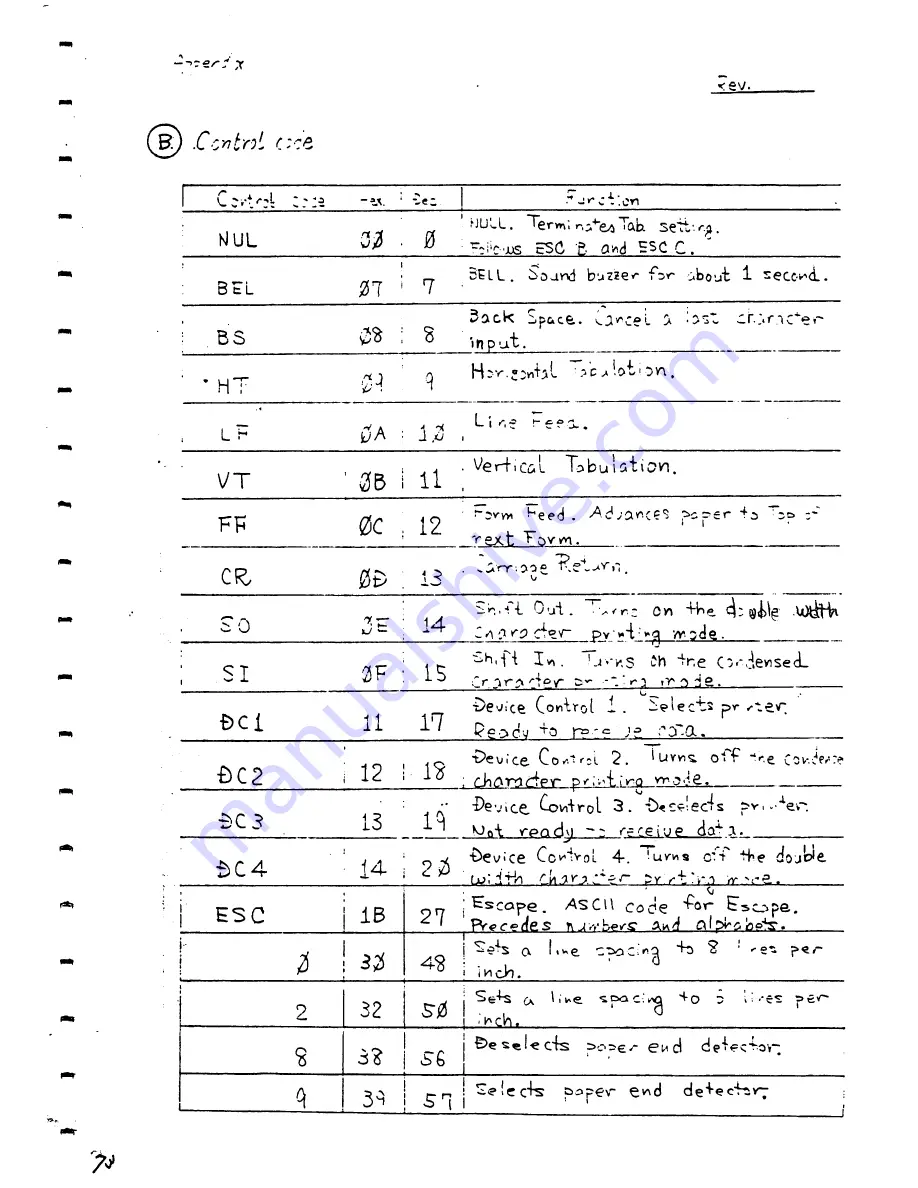 Appendix
Rev.
B. Control code
Control code Hex. Dec. Function
NUL 00 0 NULL. Terminates Tab setting.
Follows ESC B and ESC C.
BEL 07 7 BELL. Sound buzzer for about 1 second.
BS 08 8 Back Space. Cancel a last character
input.
HT 09 9 Horizontal Tabulation.
LF 0A 10 Line Feed.
VT 0B 11 Vertical Tabulation.
FF 0C 12 Form Feed. Advances paper to Top of
next Form.
CR 0D 13 Carriage Return.
SO 0E 14 Shift Out. Turns on the double width
character printing mode.
SI 0F 15 Shift In. Turns on the condensed
character printing mode.
DC1 11 17 Device Control 1. Selects printer.
Ready to receive data.
DC2 12 18 Device Control 2. Turns off the condense
character printing mode.
DC3 13 19 Device Control 3. Deselects printer.
Not ready to receive data.
DC4 14 20 Device Control 4. Turns off the double
width character printing mode.
ESC 1B 27 Escape. ASCII code for Escape.
Precedes numbers and alphabets.
0 30 48 Sets a line spacing to 8 lines per
inch.
2 32 50 Sets a line spacing to lines per
inch.
8 38 56 Deselects paper end detector.
9 39 57 Selects paper end detector.
manualshive.com